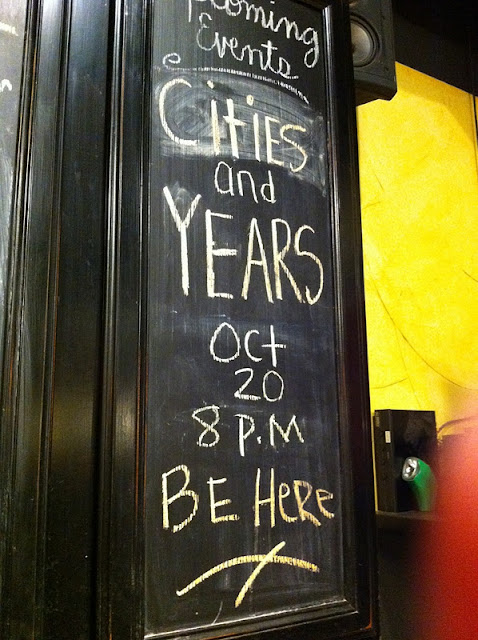 Upcoming
Events
Cities
and
YEARS
Oct
20
8 P.M
BE HeRe